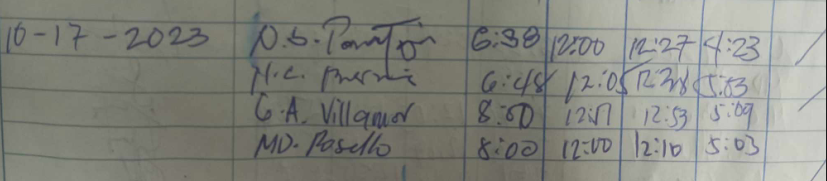 10-17-2023 N.S. 6:38 12:00 12:27 4:23
N.C. 6:48 12:05 12:28 5:03
G.A. Villamor 8:00 12:51 12:53 5:09
MD. Rosello 8:00 12:00 12:10 5:03